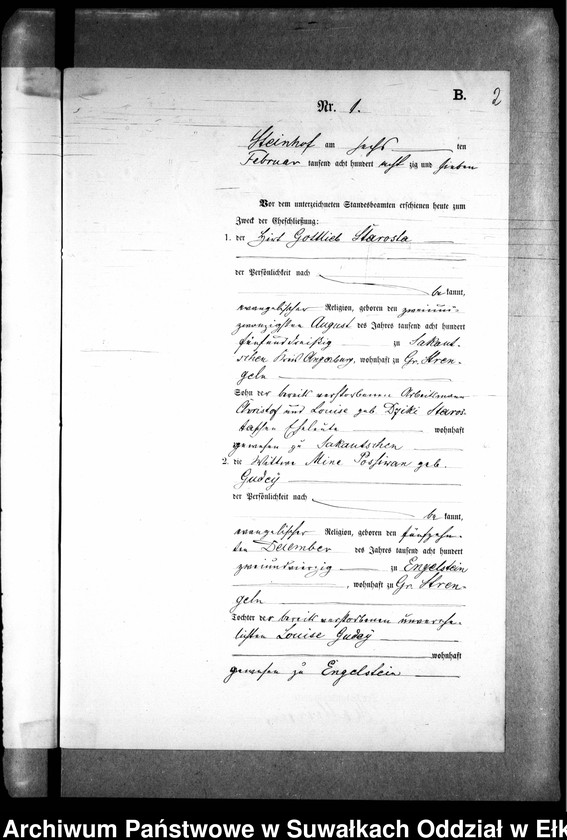 B. 2
Nr. 1.
Steinhof am sechs ten
Februar tausend acht hundert acht zig und sieben
Vor dem unterzeichneten Standesbeamten erschienen heute zum
Zweck der Eheschließung:
1. der Hirt Gottlieb Starosta
der Persönlichkeit nach
be kannt,
evangelischer Religion, geboren den zweiund-
zwanzigsten August des Jahres tausend acht hundert
fünfunddreißig zu Sakaut-
schen Kreis Angerburg, wohnhaft zu Gr. Stren-
geln
Sohn der bereits verstorbenen Arbeitsmann
Christof und Louise geb Dziki Staros-
taschen Eheleute wohnhaft
gewesen zu Sakautschen
2. die Wittwe Mine Possivan geb.
Gudey
der Persönlichkeit nach
be kannt,
evangelischer Religion, geboren den fünfzehn-
ten Dezember des Jahres tausend acht hundert
zweiundvierzig zu Engelstein
, wohnhaft zu Gr. Stren-
geln
Tochter der bereits verstorbenen unverehe-
lichten Louise Guday
wohnhaft
gewesen zu Engelstein
Archiwum Państwowe w Suwałkach Oddział w Ełk